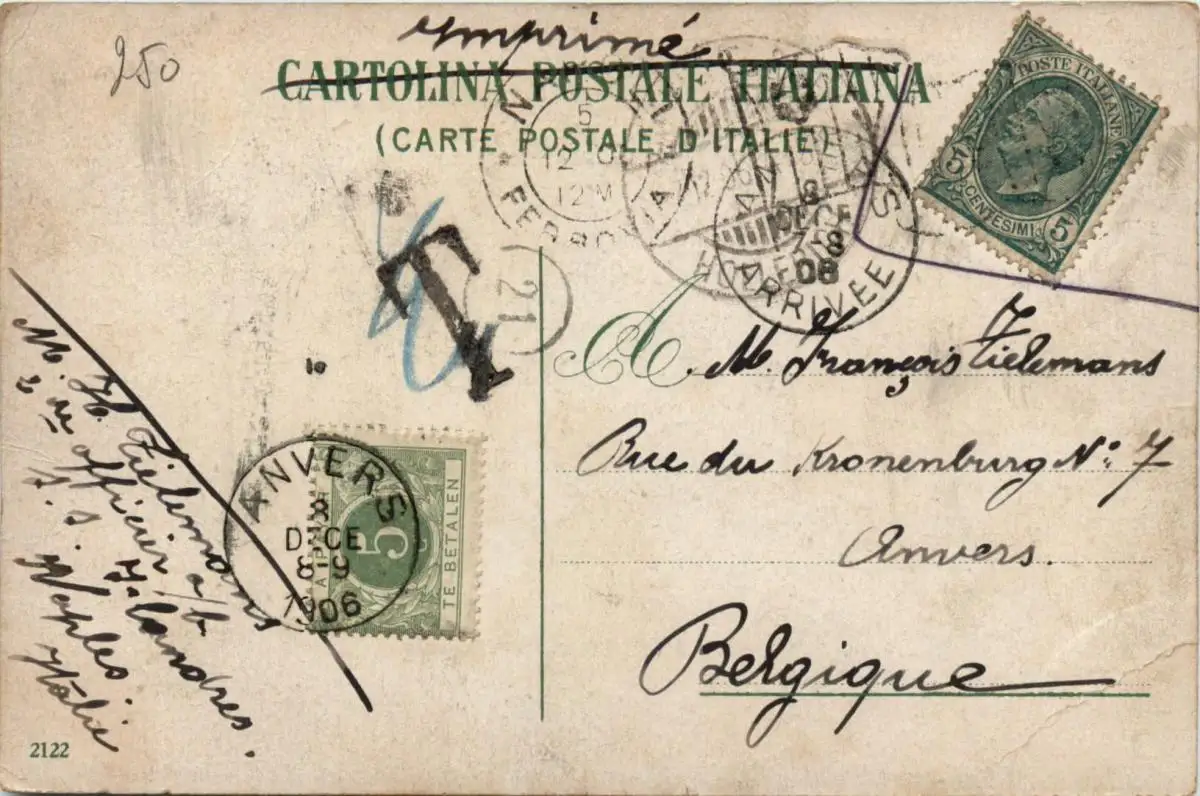 250
Imprimé
CARTOLINA POSTALE ITALIANA
(CARTE POSTALE D'ITALIE)
POSTE ITALIANE
5 CENTESIMI 5
5
12
12M
FERROVIA
8
DECE
8
06
ARRIVEE
T
21
A M. François Tielemans
Rue du Kronenburg No: 7
Anvers.
Belgique
le
ANVERS
8
DECE
8-9
1906
5
A PAYER
TE BETALEN
M. H. Tielemans
2 me officier a/b
S. S. Flandres.
Naples.
Italie
2122